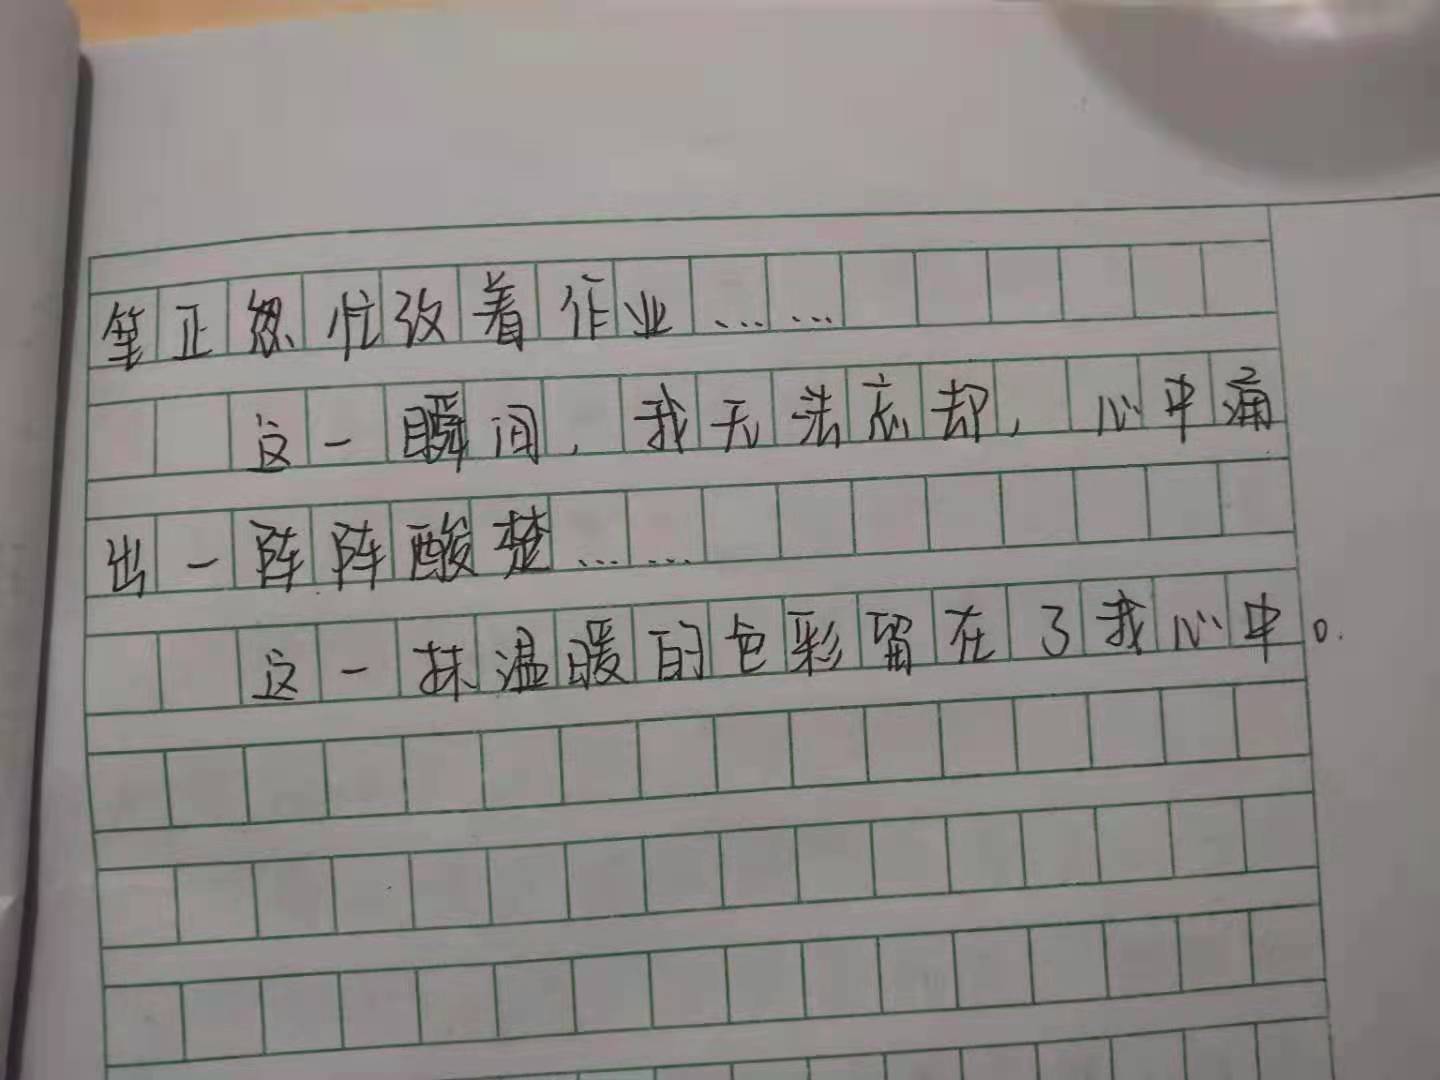 笔正匆忙改着作业……
这一瞬间,我无法忘却,心中涌
出一阵阵酸楚……
这一抹温暖的色彩留在了我心中。